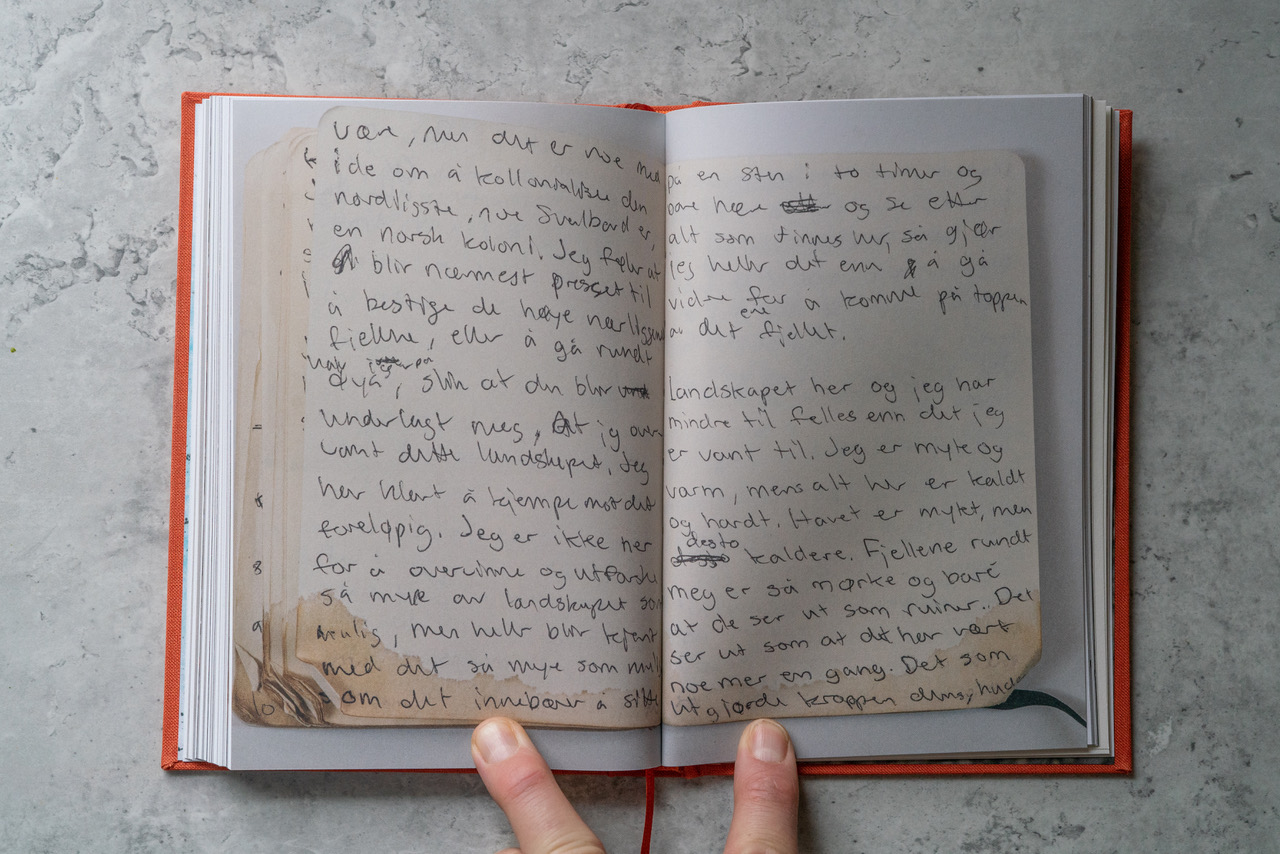 være, men det er noe med
ide om å kollonialisere den
nordligste, noe Svalbard er,
en norsk koloni. Jeg føler at
blir nærmest presset til
å bestige de høye nærliggende
fjellene, eller å gå rundt
på
øya, slik at den blir
underlagt meg, At jeg over
vant dette landskapet. Jeg
har klart å kjempe mot det
foreløpig. Jeg er ikke her
for å overvinne og utforske
så mye av landskapet som
mulig, men heller blir kjent
med det så mye som mulig
som det innebærer å sitte
på en sten i to timer og
bare høre og se etter
alt som finnes her, så gjør
jeg heller det enn å gå
videre for å komme på toppen
av det ene fjellet.
Landskapet her og jeg har
mindre til felles enn det jeg
er vant til. Jeg er myk og
varm, mens alt her er kaldt
og hardt. Havet er mykt, men
desto kaldere. Fjellene rundt
meg er så mørke og bare
at de ser ut som ruiner.. Det
ser ut som at det har vært
noe mer en gang. Det som
utgjorde kroppen dens, hud